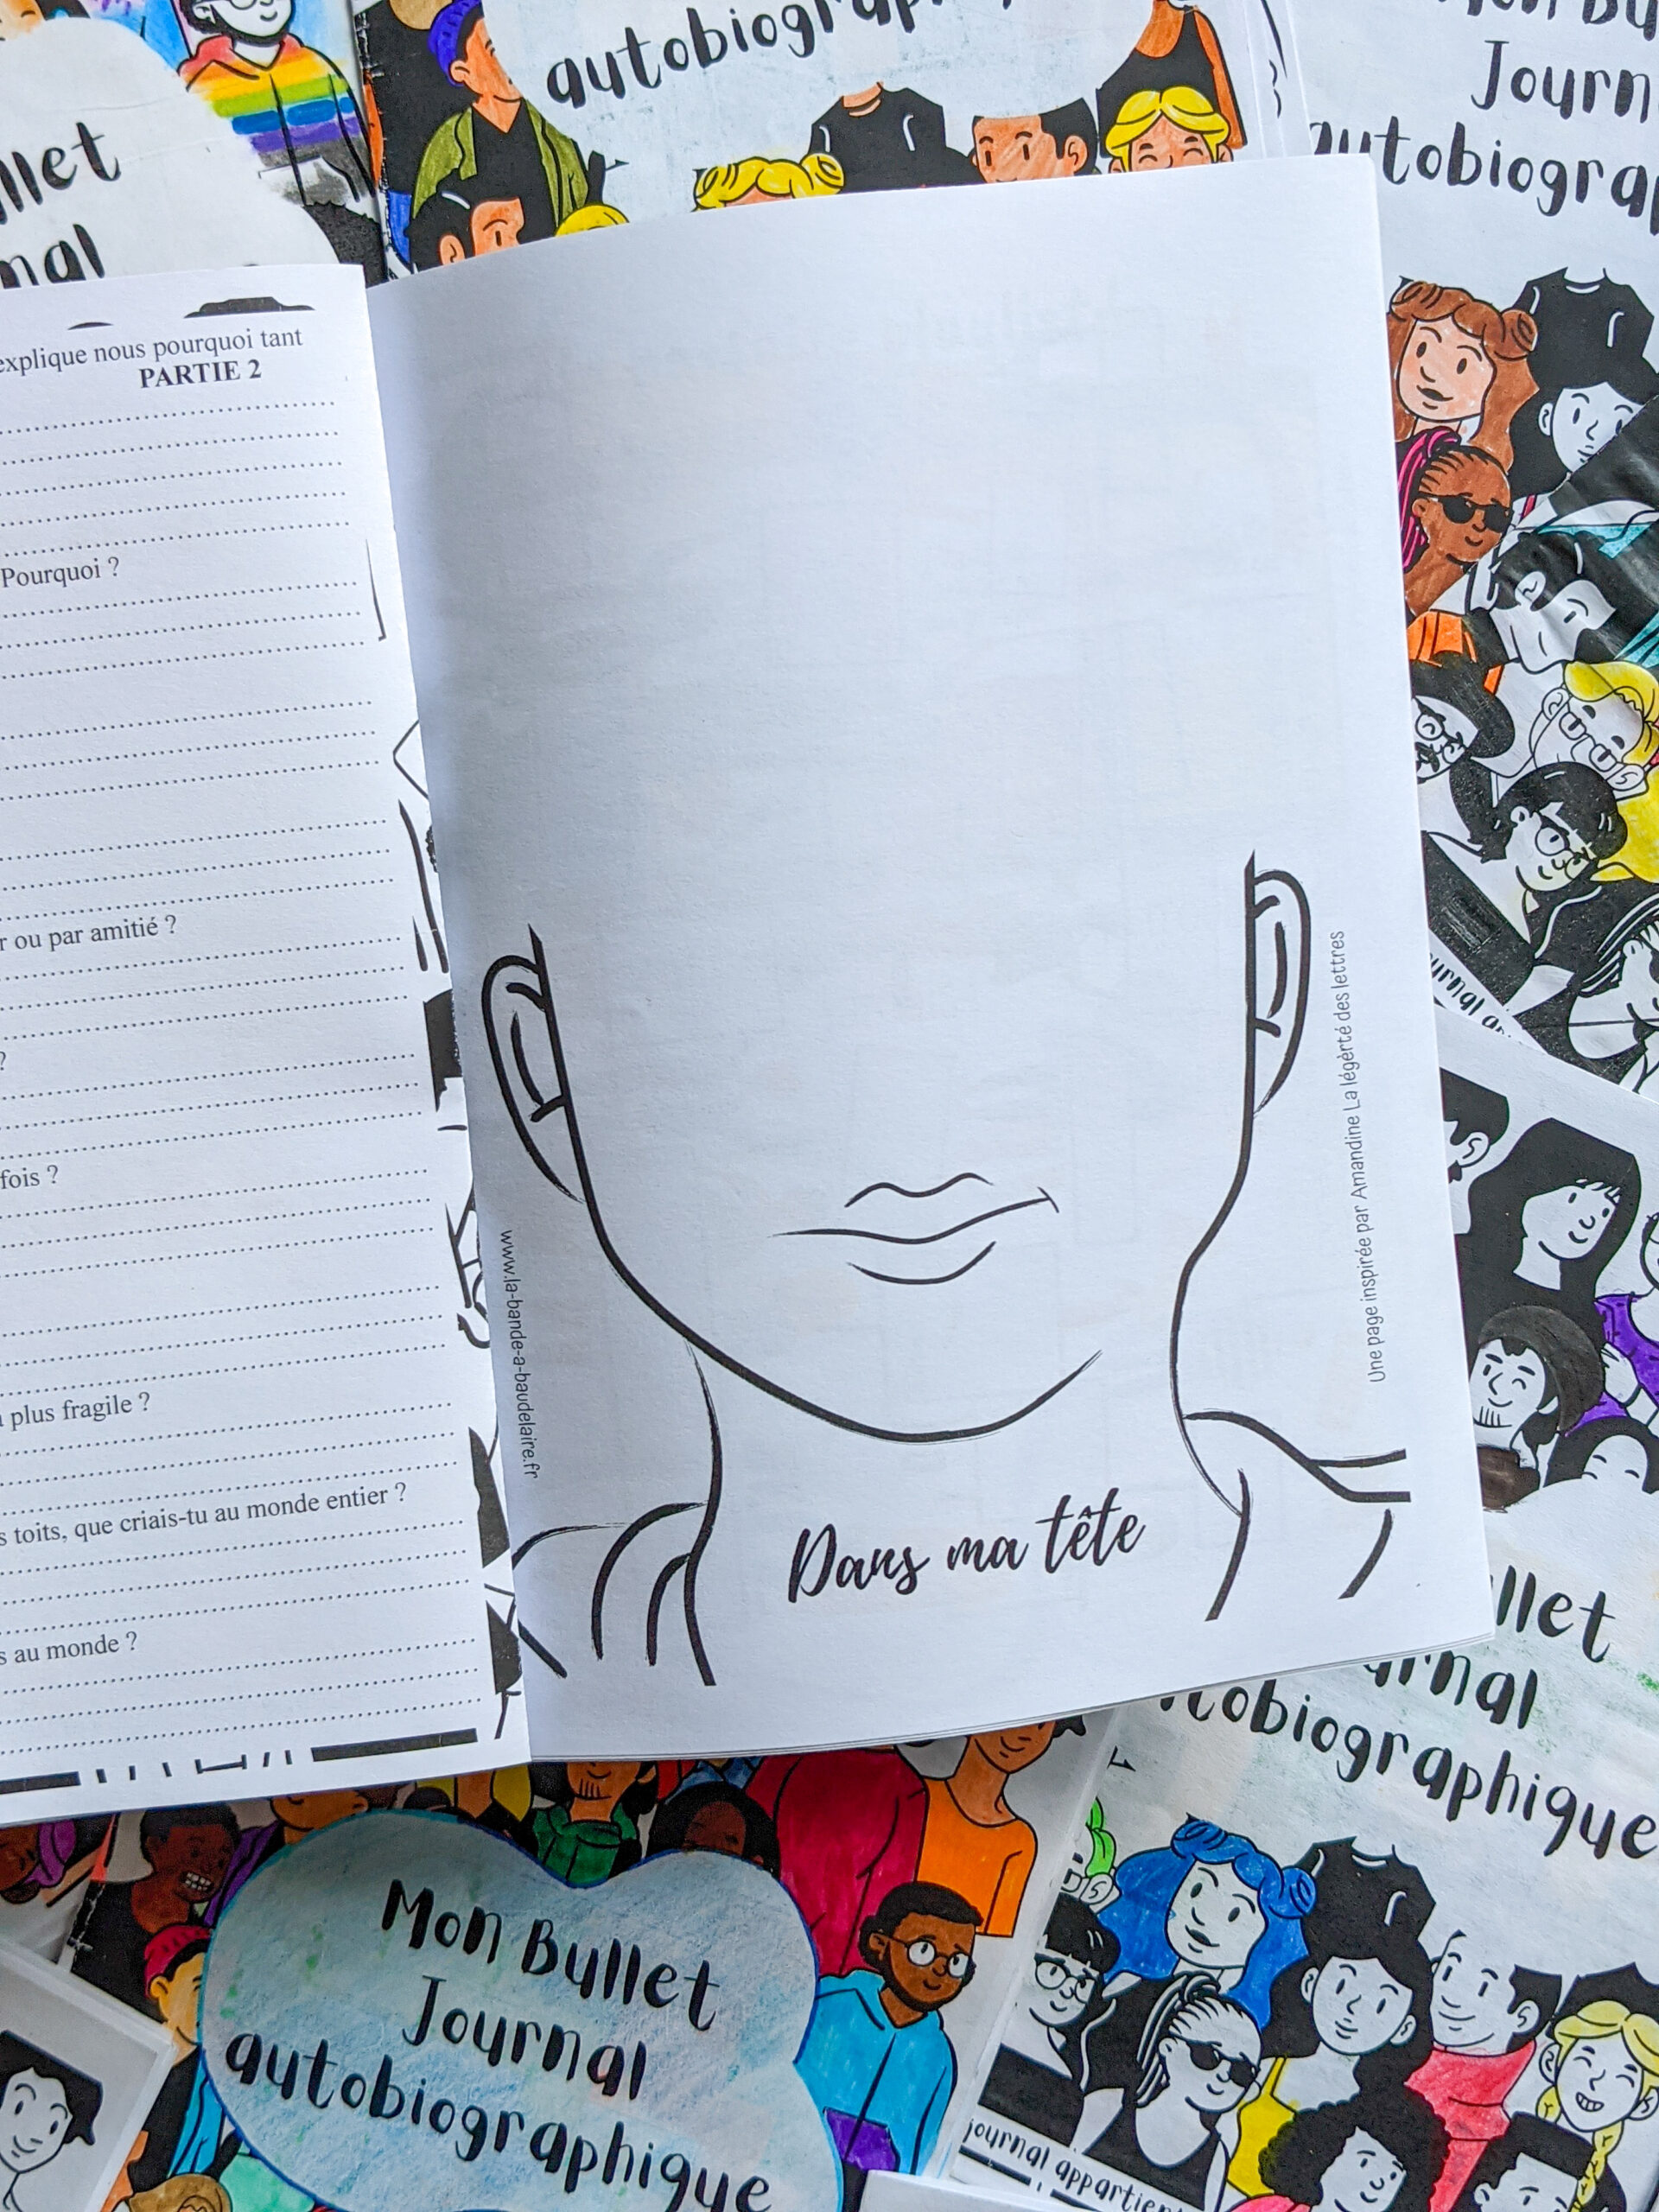 autobiogra
Journ
autobiogra
explique nous pourquoi tant
PARTIE 2
Pourquoi ?
ou par amitié ?
?
fois ?
plus fragile ?
toits, que criais-tu au monde entier ?
au monde ?
www.la-bande-a-baudelaire.fr
Dans ma tête
Une page inspirée par Amandine La légérté des lettres
Mon Bullet
Journal
autobiographique
llet
urnal
tobiographique
journal appartien